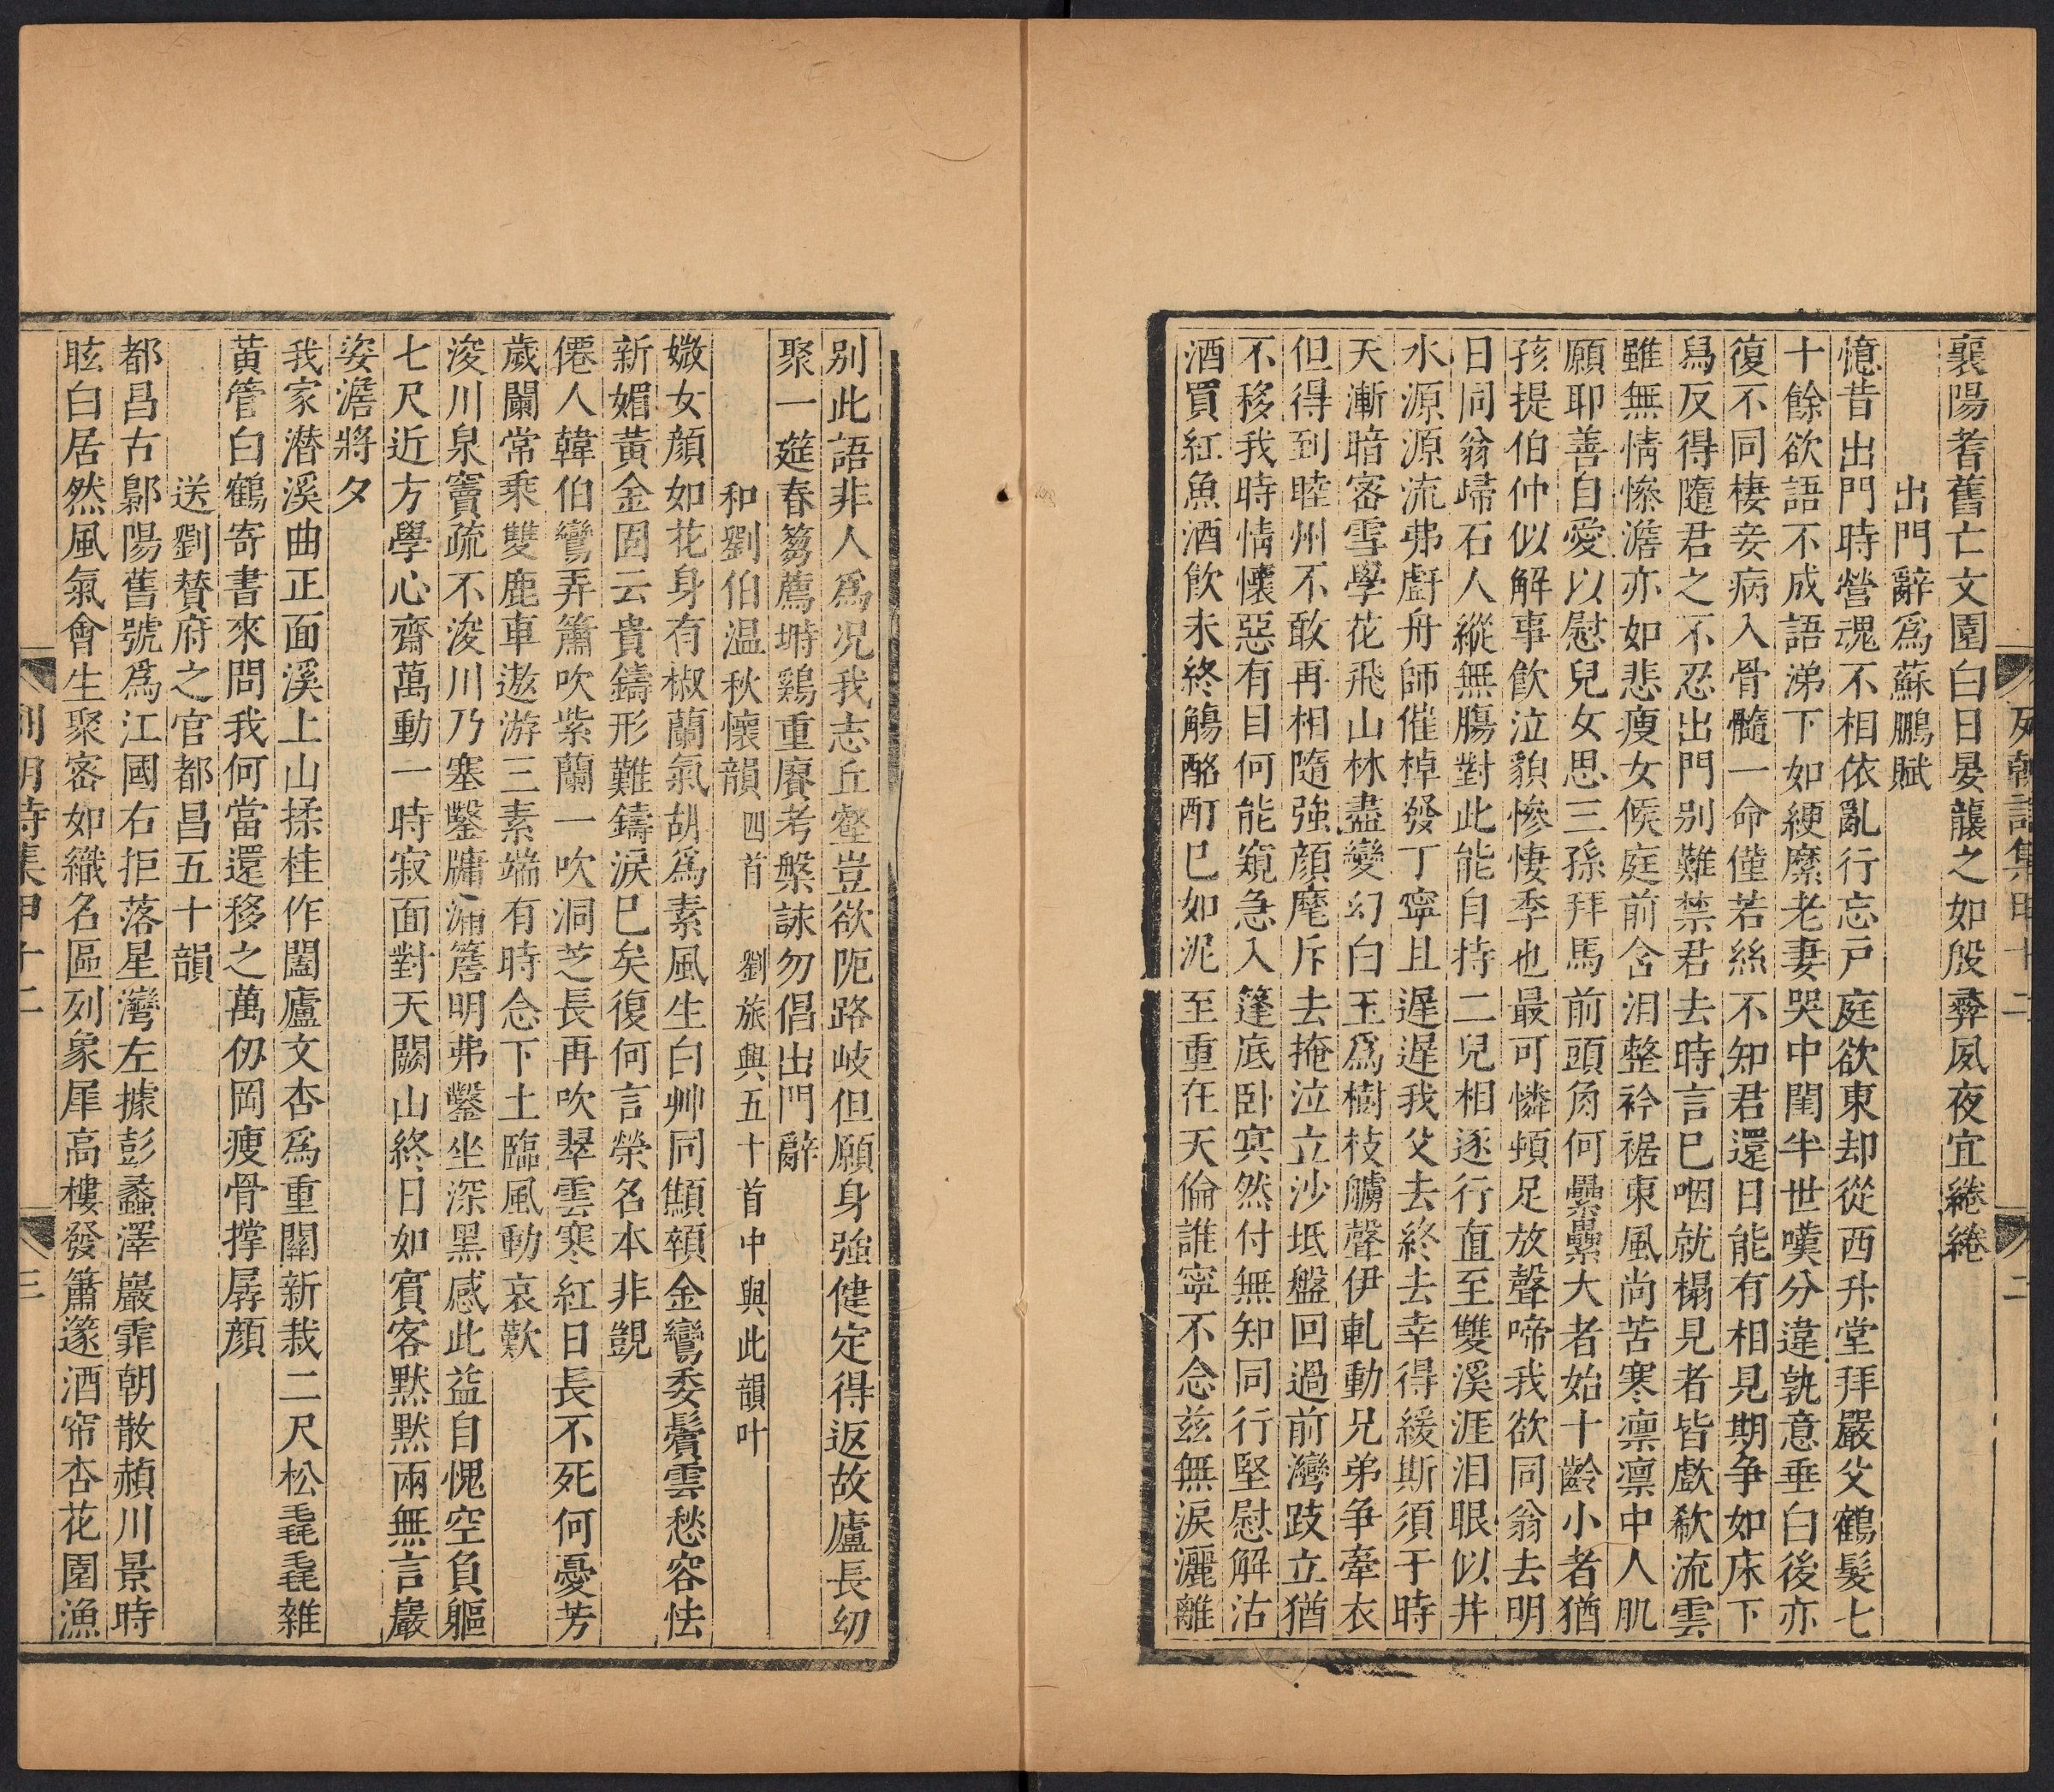 列朝詩集甲十二
二
襄陽耆舊亡文園白日晏龖之如殷彝夙夜宜綣綣
出門辭爲蘇鵬賦
憶昔出門時營魂不相依亂行忘戸庭欲東却從西升堂拜嚴父鶴髮七
十餘欲語不成語涕下如綆縻老妻哭中閨半世嘆分違孰意垂白後亦
復不同棲妾病入骨髓一命僅若絲不知君還日能有相見期争如床下
舄反得隨君之不忍出門别難禁君去時言巳咽就榻見者皆歔欷流雲
雖無情慘澹亦如悲瘦女候庭前含泪整衿裾東風尚苦寒凛凛中人肌
願耶善自愛以慰兒女思三孫拜馬前頭角何纍纍大者始十齡小者猶
孩提伯仲似解事飲泣貌慘悽季也最可憐頓足放聲啼我欲同翁去明
日同翁歸石人縱無膓對此能自持二兒相逐行直至雙溪涯泪眼似井
水源源流弗㡿舟師催棹發丁寧且遲遲我父去終去幸得緩斯須于時
天漸暗密雪學花飛山林盡變幻白玉爲樹枝艣聲伊軋動兄弟争牽衣
但得到睦州不敢再相隨強顔麾斥去掩泣立沙坻盤回過前灣跂立猶
不移我時情懷惡有目何能窺急入篷底卧㝠然付無知同行堅慰解沽
酒買紅魚酒飲未終觴酩酊巳如泥至重在天倫誰寧不念兹無淚灑離
别此語非人爲况我志丘壑豈欲阨路岐但願身強健定得返故廬長幼
聚一莚春蒭薦塒鷄重賡考槃詠勿倡出門辭
和劉伯温秋懷韻四首 劉旅興五十首中與此韻叶
媺女顔如花身有椒蘭氣胡爲素風生白艸同顦顇金鸞委鬒雲愁容怯
新媚黃金固云貴鑄形難鑄淚巳矣復何言榮名本非覬
僊人韓伯鸞弄簫吹紫蘭一吹洞芝長再吹翠雲寒紅日長不死何憂芳
歲闌常乘雙鹿車遨游三素端有時念下土臨風動哀歎
浚川泉竇疏不浚川乃塞鑿牖通簷明弗鑿坐深黑感此益自愧空負軀
七尺近方學心齋萬動一時寂面對天闕山終日如賓客默默兩無言巖
姿澹將夕
我家潜溪曲正面溪上山揉桂作闔廬文杏爲重關新栽二尺松毳毳雜
黃管白鶴寄書來問我何當還移之萬仭岡瘦骨撑孱顔
送劉贊府之官都昌五十韻
都昌古鄡陽舊號爲江國右拒落星灣左據彭蠡澤巖霏朝散赬川景時
眩白居然風氣會生聚密如織名區列象犀高樓發簫篴酒帘杏花園漁
列朝詩集甲十二
三